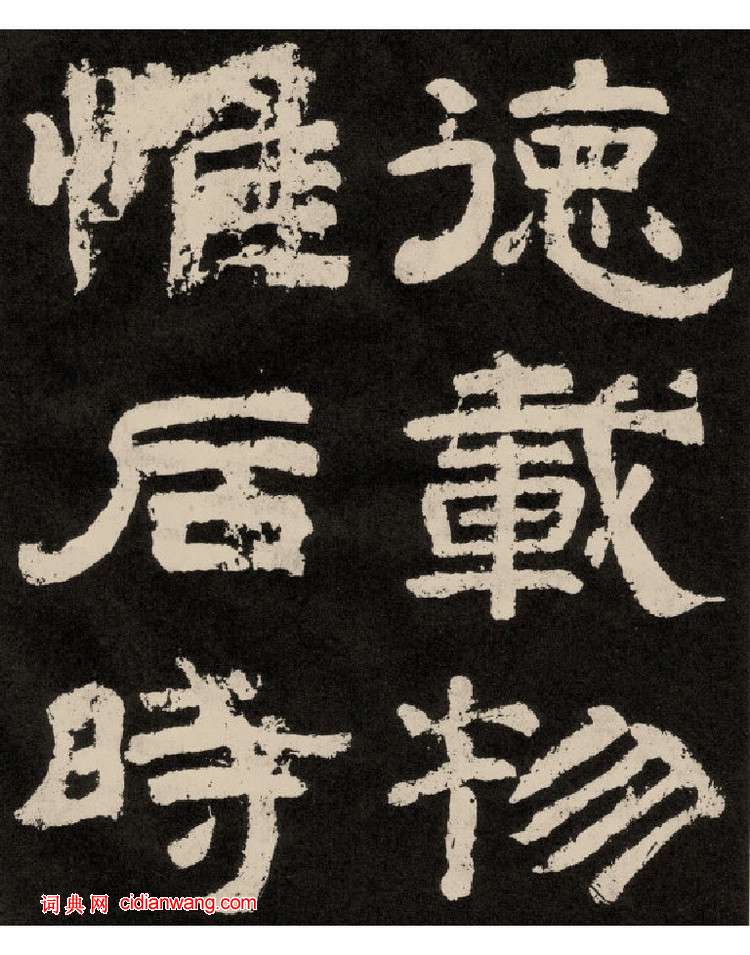 德載物
惟后時
词典网 cidianwang.com